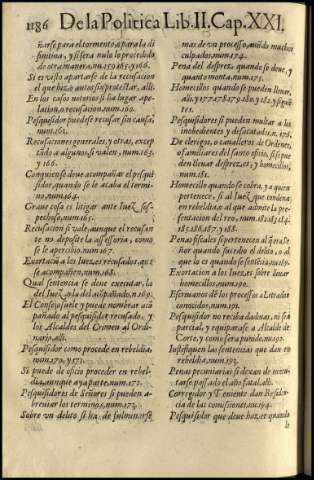 1186 De la Politica Lib. II. Cap. XXI.
ñarse para el tormento, o para la di
finitiua, y si sera nulo lo procedido
de otra manera, nu. 159. 165. y 166.
Si es visto apartarse de la recusacion
el que haze autos sin protestar, alli.
En los casos notorios si ha lugar ape-
lacion, o recusacion, num. 160.
Pesquisidor puede se recusar sin causa,
num. 162.
Recusaciones generales, y otras, excep
tado a algunos, si valen, num. 163.
y 166.
Conquien se deue acompañar el pesqui
sidor, quando se le acaba el termi-
no, num. 164.
Graue cosa es litigar ante Iuez sos-
pechoso, num. 165.
Recusacion si vale, aunque el recusan
te no deposite la assessoria, como
se le apercibio. num. 167.
Exortacion a los Iuezes recusados, que
se acompañen, num. 168.
Qual sentencia se deue executar, la
del Iuez, o la del acompañado, n. 169.
El Consejo suele y puede nombrar acõ
pañado al pesquisidor recusado, y
los Alcaldes del Crimen al Ordi-
nario, alli.
Pesquisidor como procede en rebeldia,
num. 170. y 171.
Si puede de oficio proceder en rebel-
dia, aunque aya parte, num. 172.
Pesquisidores de Señores si pueden a-
breuiar los terminos, num. 173.
Sobre vn delito si ha de fulminarse
mas de vn processo, auiendo muchos
culpados, num. 174.
Pena del desprez, quando se deue, y
quanto monta, num. 175.
Homecillos quando se pueden lleuar,
alli, y 177. 178. 179. 180. y 182. y siguiẽ
tes.
Pesquisidores si pueden multar a los
inobedientes y desacatados, n. 176.
De clerigos, o caualleros de Ordenes,
o familiares del santo oficio, si se pue
den lleuar desprezes, y homecillos,
num. 181.
Homecillo quando se cobra, y a quien
pertenece, si al Iuez que condena
en rebeldia: o al que admite la pre-
sentacion del reo, num. 182. 183. 184.
185. 186. 187. y 188.
Penas fiscales si pertenecen al que era Se
ñor quando sucedio el delito, o al
que lo es quando se sentẽcia, nu. 189.
Exortacion a los Iuezes sobre lleuar
homecillos, num. 190.
Escriuanos de los processos a Letrados
conocidos, num. 191.
Pesquisidor no reciba dadiuas, ni sea
parcial, y equiparase a Alcalde de
Corte, y como sera punido, nu. 192.
Iustifiquen las sentencias que dan en
rebeldia, num. 193.
Penas pecuniarias si dexan de execu-
tarse passado el año fatal, alli.
Corregidor y Teniente dan Residen-
cia de las comissiones, nu. 194.
Pesquisidor que deue hazer quando